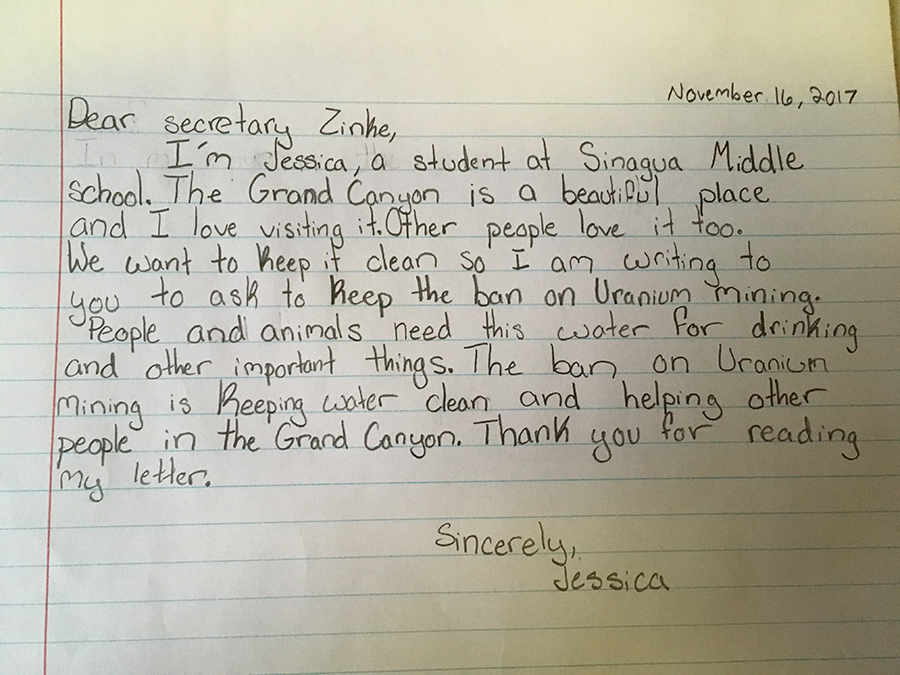 November 16, 2017
Dear secretary Zinke,
I'm Jessica, a student at Sinagua Middle
school. The Grand Canyon is a beautiful place
and I love visiting it. Other people love it too.
We want to keep it clean so I am writing to
you to ask to keep the ban on Uranium mining.
People and animals need this water for drinking
and other important things. The ban on Uranium
mining is keeping water clean and helping other
people in the Grand Canyon. Thank you for reading
my letter.
Sincerely,
Jessica